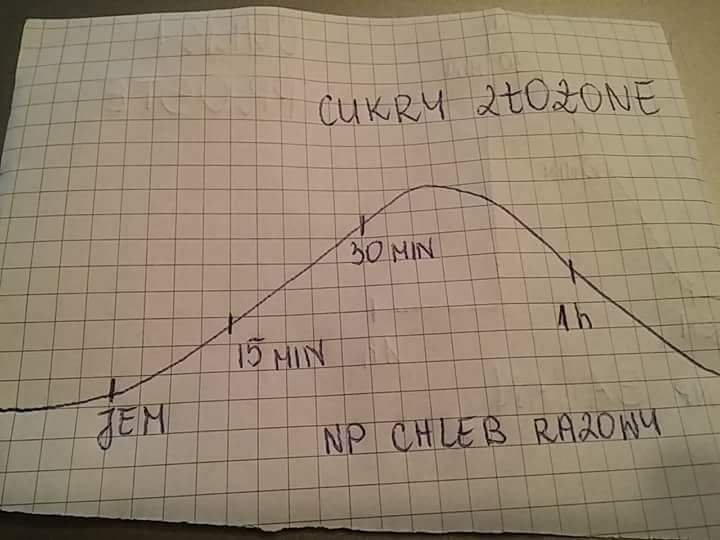 CUKRY ZŁOŻONE
30 MIN
1h
15 MIN
JEM
NP CHLEB RAZOWY